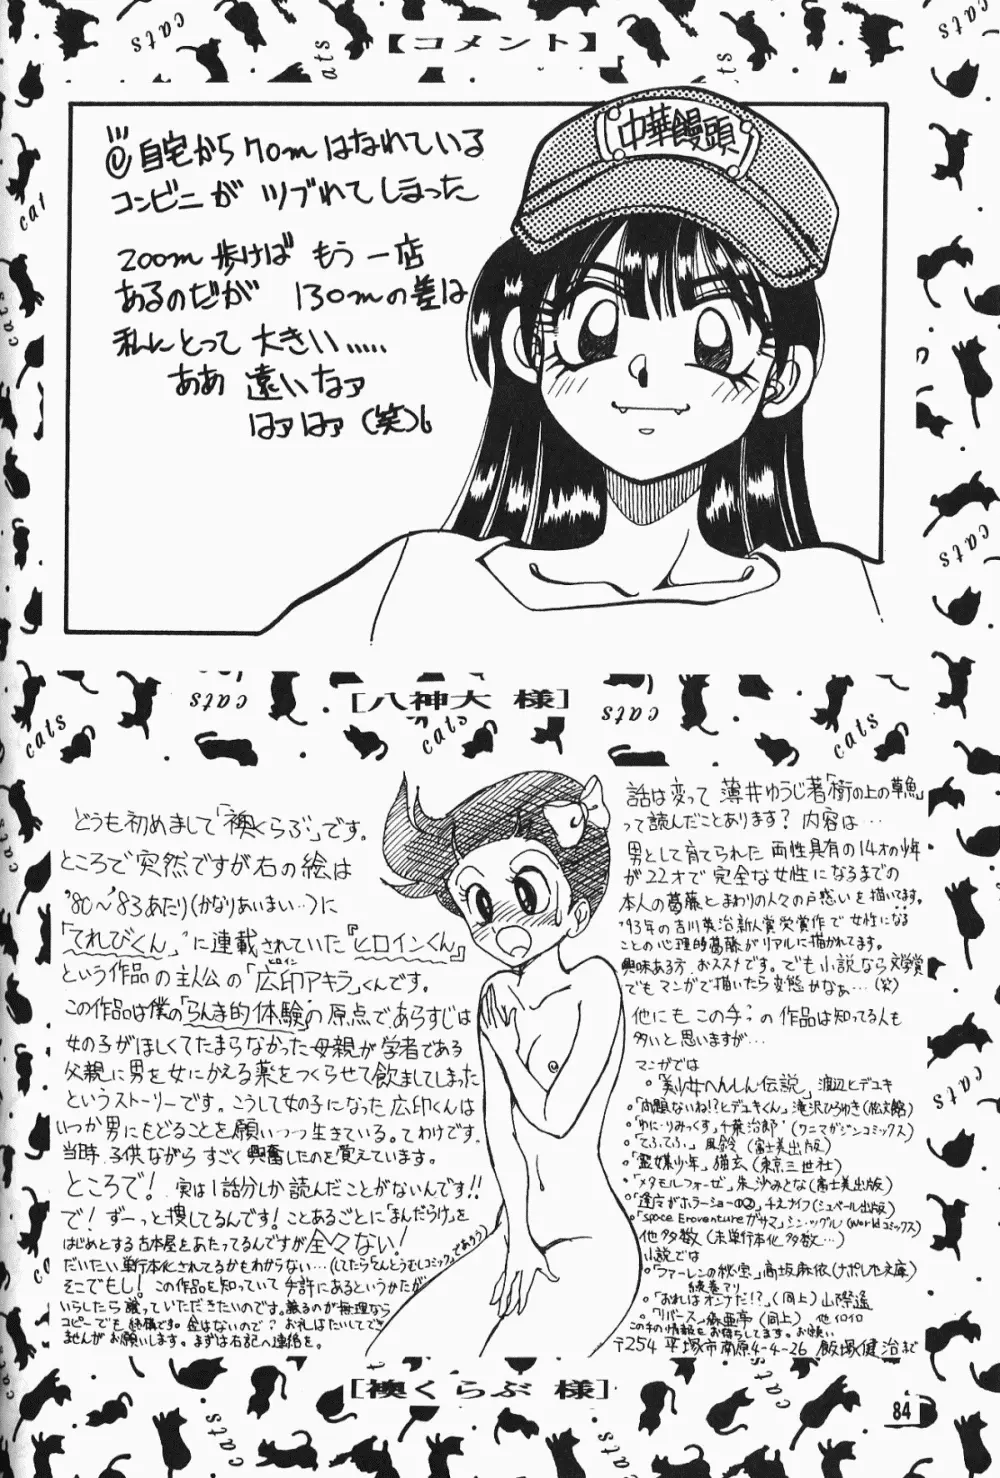 【コメント】
中華饅頭
自宅から70mはなれている
コンビニが ツブれてしまった
200m 歩けば もう一店
あるのだが 130mの差は
私にとって 大きい.....
ああ 遠いなァ
はァはァ(笑)
[八神大 様]
どうも初めまして「襖くらぶ」です。
ところで突然ですが右の絵は
'80〜'83あたり(かなりあいまい…)に
「てれびくん」に連載されていた『ヒロインくん』
という作品の主人公の「広印アキラ」くんです。
ヒロイン
この作品は僕の「らんま的体験」の原点で、あらすじは
女の子がほしくてたまらなかった母親が学者である
父親に男を女にかえる薬をつくらせて飲ましてしまった
というストーリーです。こうして女の子になった広印くんは
いつか男にもどることを願いつつ生きている。てわけです。
当時、子供ながら すごく興奮したのを覚えています。
ところで! 実は1話分しか読んだことがないんです!!
で! ずーっと捜してるんです! ことあるごとに「まんだらけ」を
はじめとする古本屋をあたってるんですが全々ない!
だいたい単行本化されてるかもわからない…(してたらてんとうむしコミックであろう)
そこでもし! この作品を知っていて手許にあるというかたが
いらしたら譲っていただきたいのです。譲るのが無理なら
コピーでも結構です。金はないので? お礼はたいしてでき
ませんがお願いします。まずは右記へ連絡を。
話は変って 薄井ゆうじ著「樹の上の草魚」
って読んだことあります? 内容は…
男として育てられた 両性具有の14才の少年
が22才で完全な女性になるまでの
本人の葛藤とまわりの人々の戸惑いを描いてます。
'93年の吉川英治新人賞受賞作で女性になる
ことの心理的葛藤がリアルに描かれてます。
興味ある方、おススメです。でも小説なら文学賞
でもマンガで描いたら変態かなぁ…(笑)
他にも この手の作品は知ってる人も
多いと思いますが…
マンガでは
。「美少女へんしん伝説」渡辺ヒデユキ
。「問題ないね!?ヒデユキくん」滝沢ひろゆき(松文館)
。「ゆに・りみっくす」千葉治郎(ワニマガジンコミックス)
。「てふてふ」風鈴(富士美出版)
。「霊媒少年」猫玄(東京三世社)
。「メタモルフォーゼ」朱沙みとな(富士美出版)
。「逢魔がホラーショーの②」キネナイフ(シュベール出版)
。「Space Eroventure ガザマ」シン・ツグル(Worldコミックス)
他多数(未単行本化多数…)
小説では
。「ファーレンの秘宝」高坂麻依(ナポレオン文庫)
続巻アリ
。「おれはオンナだ!?」(同上)山際遙
。「リバース」麻亜亭(同上) 他イロイロ
この手の情報をお待ちしてます。お願い
〒254 平塚市南原4-4-26 飯塚健治まで
[襖くらぶ 様]
84
cats